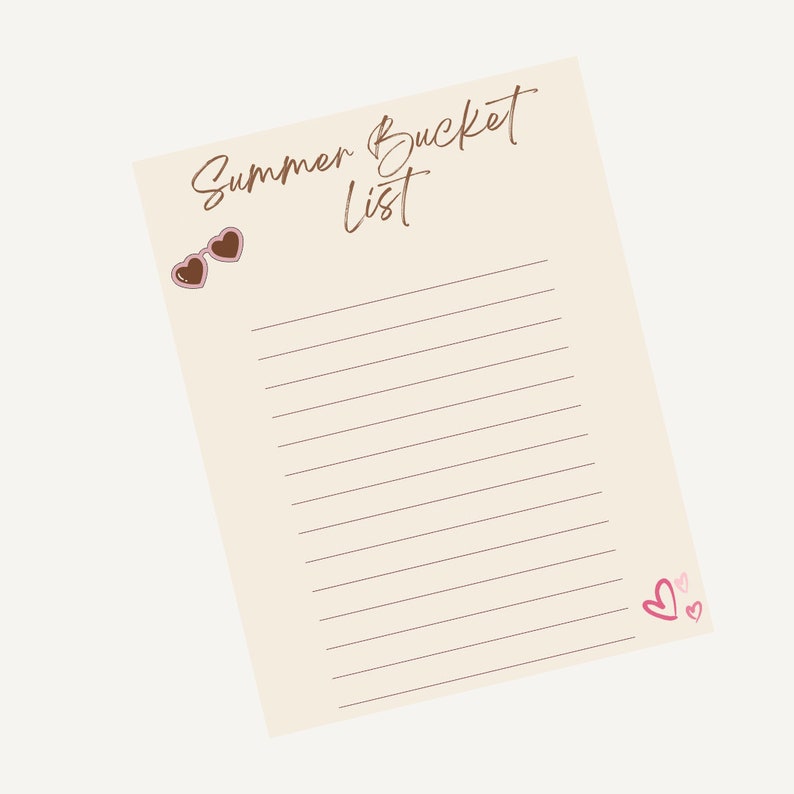 Summer Bucket
List